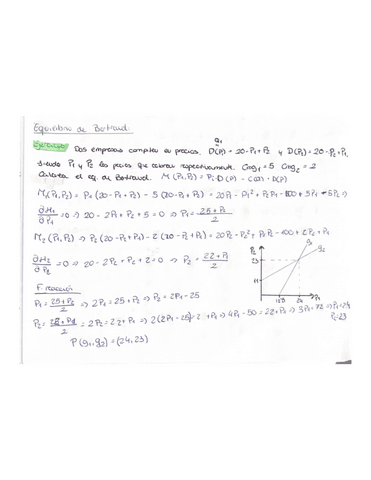 Equilibrio de Bertrand:
q1
Ejercicio Dos empresas compiten en precios. D(P) = 20-P1+P2 y D(P) = 20-P2+P1,
siendo P1 y P2 los precios que cobran respectivamente. Cmg1=5 Cmg2=2
Calcula el eq. de Bertrand. M(P1,P2) = Pi·D(P) - C(Q)·D(P)
M1(P1,P2) = P1(20-P1+P2) - 5(20-P1+P2) = 20P1-P1²+P2P1-100+5P1-5P2 ⇒
∂M1/∂P1=0 ⇒ 20-2P1+P2+5=0 ⇒ P1=25+P2/2
M2(P1,P2) ⇒ P2(20-P2+P1)-2(20-P2+P1) = 20P2-P2²+P1P2-400+2P2+P1
∂M2/∂P2=0 ⇒ 20-2P2+P1+2=0 ⇒ P2=22+P1/2
F. reacción
P1=25+P2/2 ⇒ 2P1=25+P2 ⇒ P2=2P1-25
P2=22+P1/2 = 2P2=22+P1 ⇒ 2(2P1-25)=22+P1 ⇒ 4P1-50=22+P1 ⇒ 3P1=72 ⇒ P1=24
P2=23
P(g1,g2)=(24,23)
P2
g1
g2
23
11
12'5
24
P1